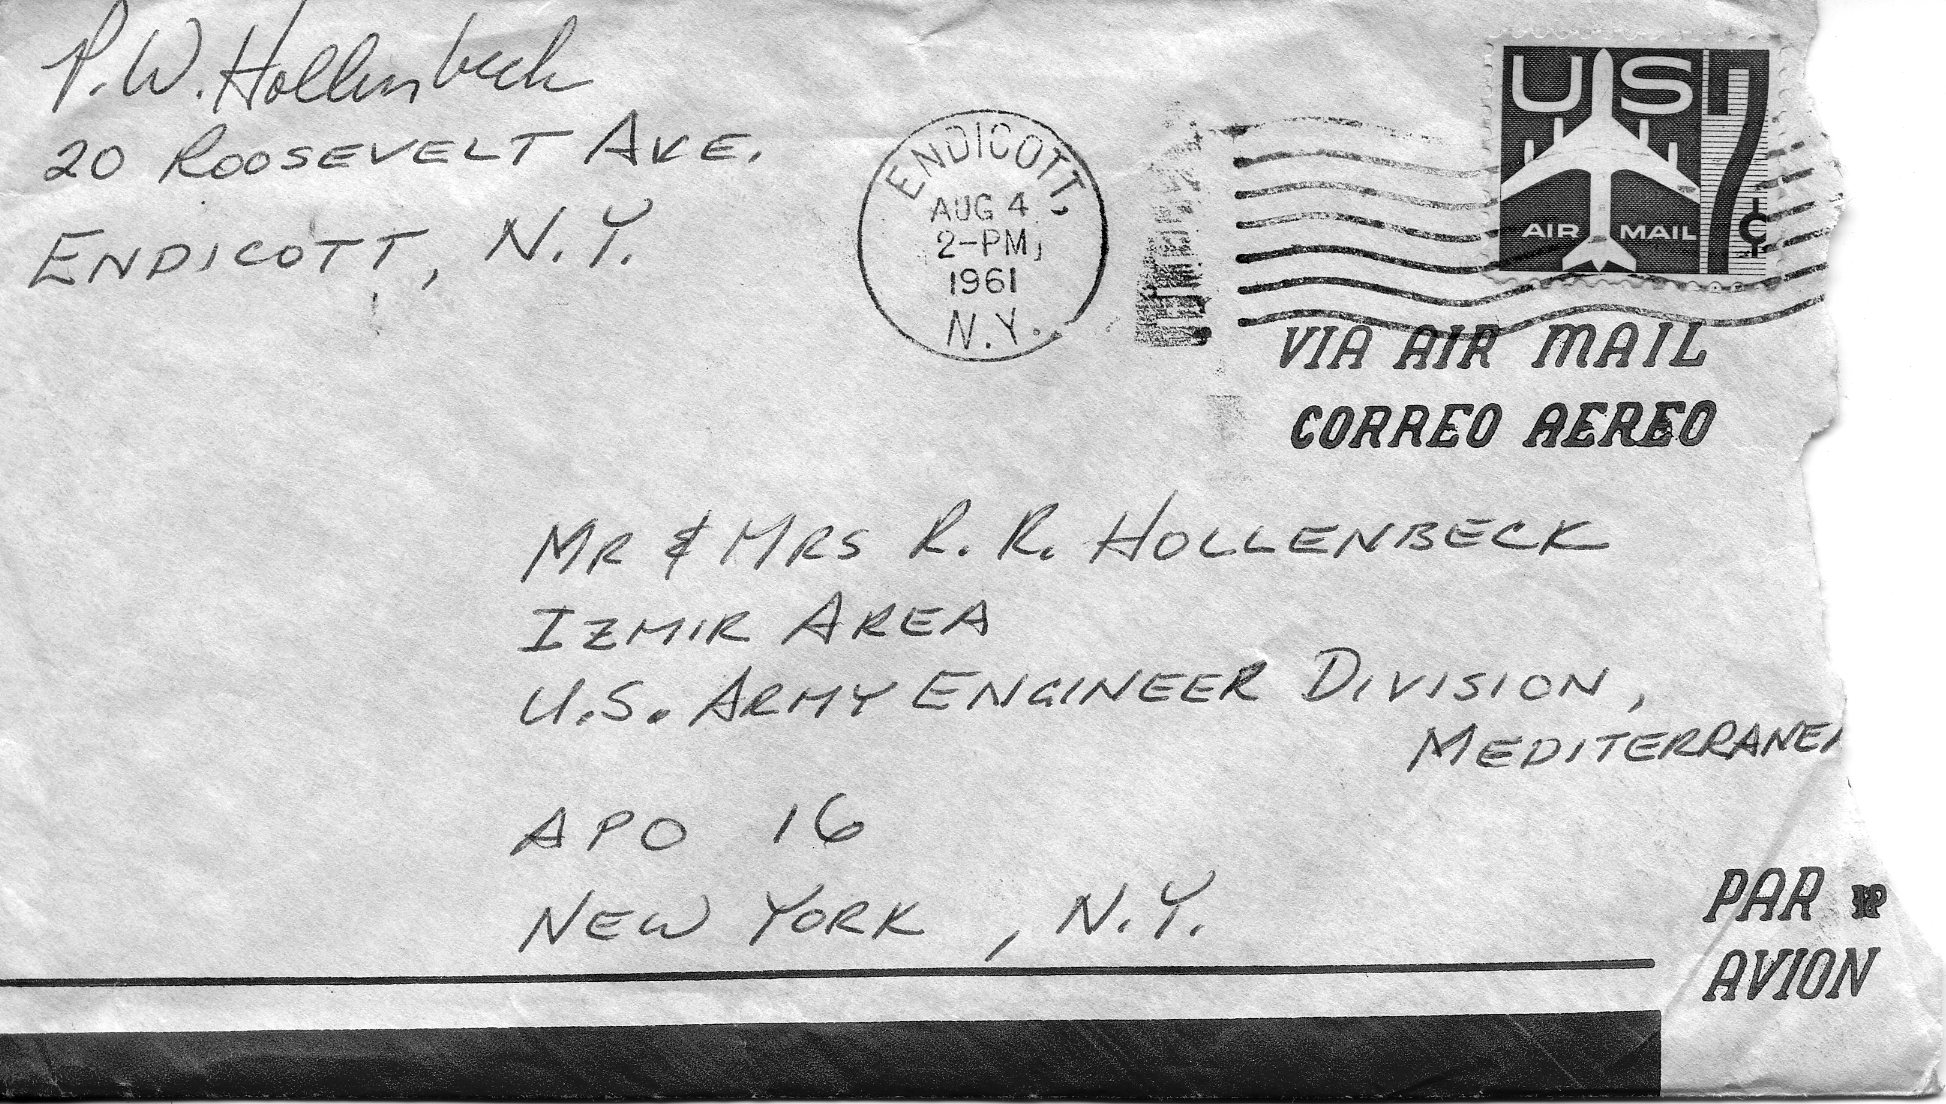 P.W. Hollenbeck
20 ROOSEVELT AVE.
ENDICOTT, N.Y.
ENDICOTT,
AUG 4
2-PM
1961
N.Y.
US
7¢
AIR MAIL
VIA AIR MAIL
CORREO AEREO
MR & MRS R. R. HOLLENBECK
IZMIR AREA
U.S. ARMY ENGINEER DIVISION,
MEDITERRANEA
APO 16
NEW YORK, N.Y.
PAR
AVION